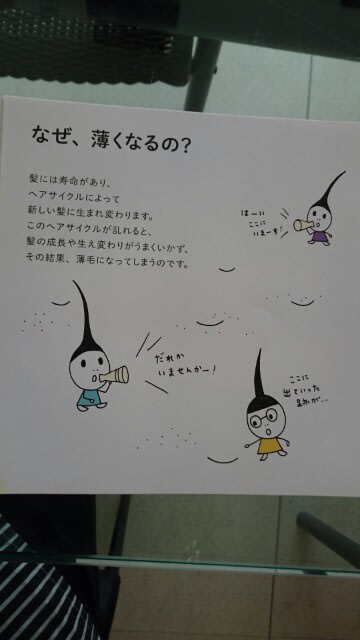 なぜ、薄くなるの？
髪には寿命があり、
ヘアサイクルによって
新しい髪に生まれ変わります。
このヘアサイクルが乱れると、
髪の成長や生え変わりがうまくいかず、
その結果、薄毛になってしまうのです。
はーい
ここに
いまーす！
だれか
いませんかー！
ここに
出ていった